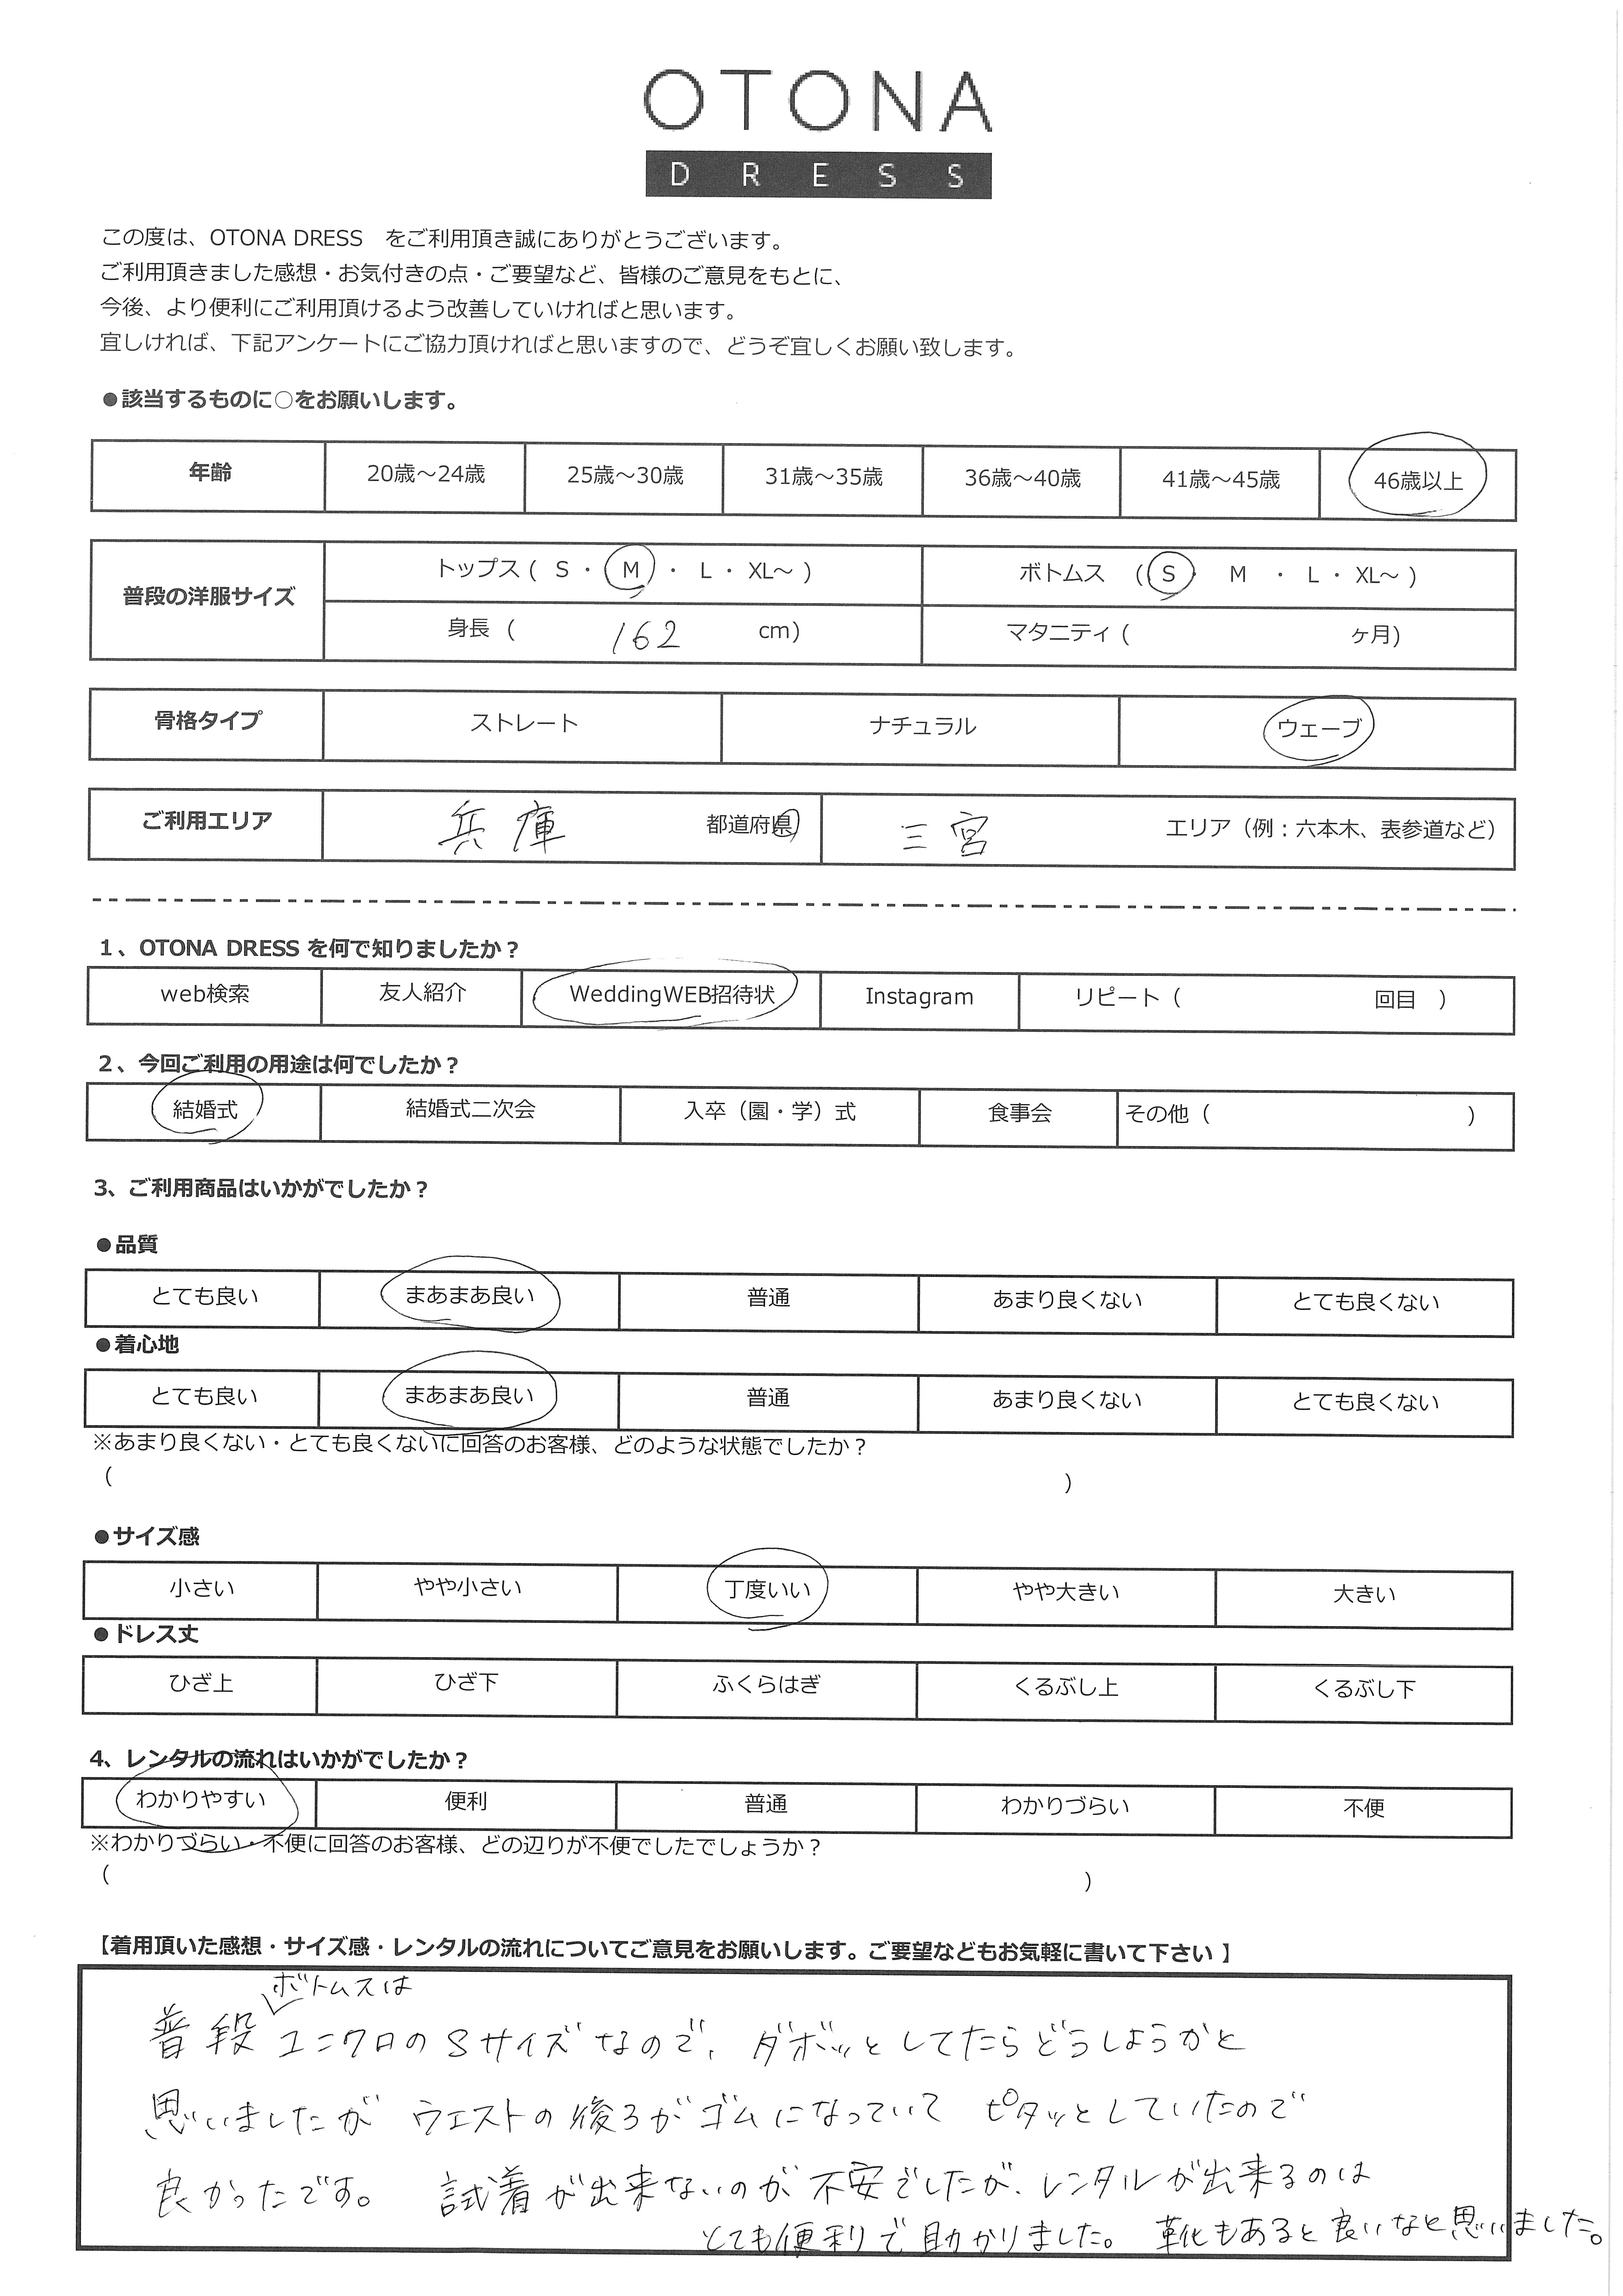 OTONA
DRESS
この度は、OTONA DRESS　をご利用頂き誠にありがとうございます。
ご利用頂きました感想・お気付きの点・ご要望など、皆様のご意見をもとに、
今後、より便利にご利用頂けるよう改善していければと思います。
宜しければ、下記アンケートにご協力頂ければと思いますので、どうぞ宜しくお願い致します。
●該当するものに○をお願いします。
年齢 20歳～24歳 25歳～30歳 31歳～35歳 36歳～40歳 41歳～45歳 46歳以上
普段の洋服サイズ
トップス ( S ・ M ・ L ・ XL～ ) ボトムス ( S ・ M ・ L ・ XL～ )
身長 ( 162 cm) マタニティ ( ヶ月)
骨格タイプ ストレート ナチュラル ウェーブ
ご利用エリア 兵庫 都道府県 三宮 エリア（例：六本木、表参道など）
1、OTONA DRESS を何で知りましたか？
web検索 友人紹介 WeddingWEB招待状 Instagram リピート（ 回目 ）
2、今回ご利用の用途は何でしたか？
結婚式 結婚式二次会 入卒（園・学）式 食事会 その他（ ）
3、ご利用商品はいかがでしたか？
●品質
とても良い まあまあ良い 普通 あまり良くない とても良くない
●着心地
とても良い まあまあ良い 普通 あまり良くない とても良くない
※あまり良くない・とても良くないに回答のお客様、どのような状態でしたか？
（ ）
●サイズ感
小さい やや小さい 丁度いい やや大きい 大きい
●ドレス丈
ひざ上 ひざ下 ふくらはぎ くるぶし上 くるぶし下
4、レンタルの流れはいかがでしたか？
わかりやすい 便利 普通 わかりづらい 不便
※わかりづらい・不便に回答のお客様、どの辺りが不便でしたでしょうか？
（ ）
【着用頂いた感想・サイズ感・レンタルの流れについてご意見をお願いします。ご要望などもお気軽に書いて下さい 】
ボトムスは
普段 ユニクロのSサイズなので、ダボッとしてたらどうしようかと
思いましたが ウエストの後ろがゴムになっていて ピタッとしていたので
良かったです。 試着が出来ないのが不安でしたが、レンタルが出来るのは
とても便利で助かりました。 靴もあると良いなと思いました。